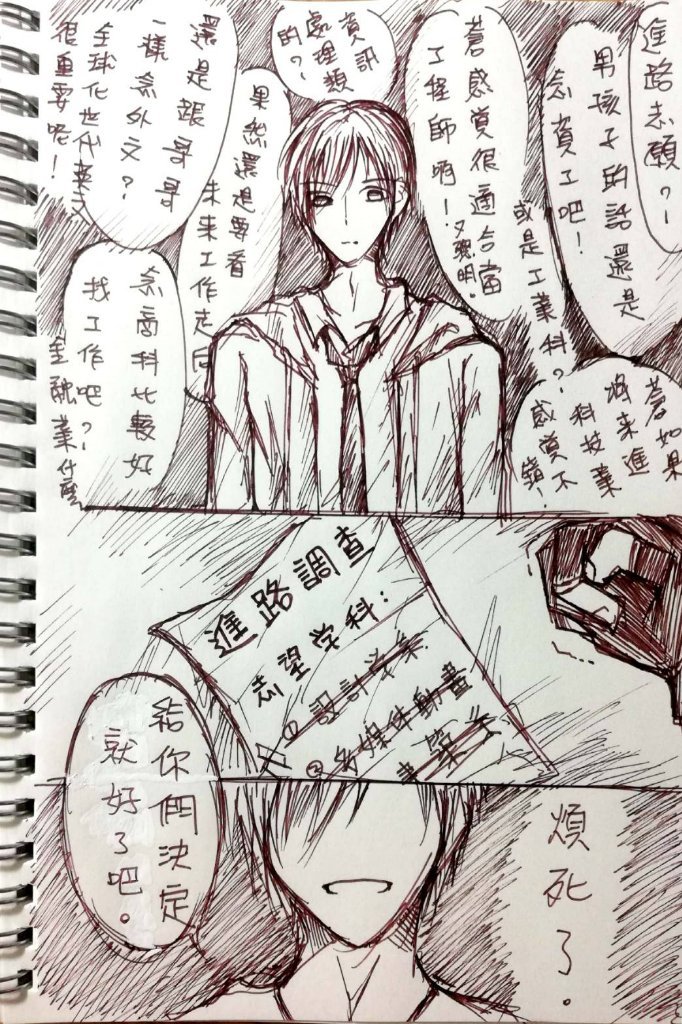 進路志願？
男孩子的話還是
念資工吧！
或是工業科？
蒼感覺很適合當
工程師啊！
又聰明。
資訊
處理類
的？
果然還是要看
未來工作走向
還是跟哥哥
一樣念外文？
全球化世代英文
很重要呢！
蒼如果
將來進
科技業
感覺不
錯！
念商科比較好
找工作吧？
金融業什麼
進路調查
志望学科：
①設計学集
②多媒体動畫
給你們決定
就好了吧。
煩死了。